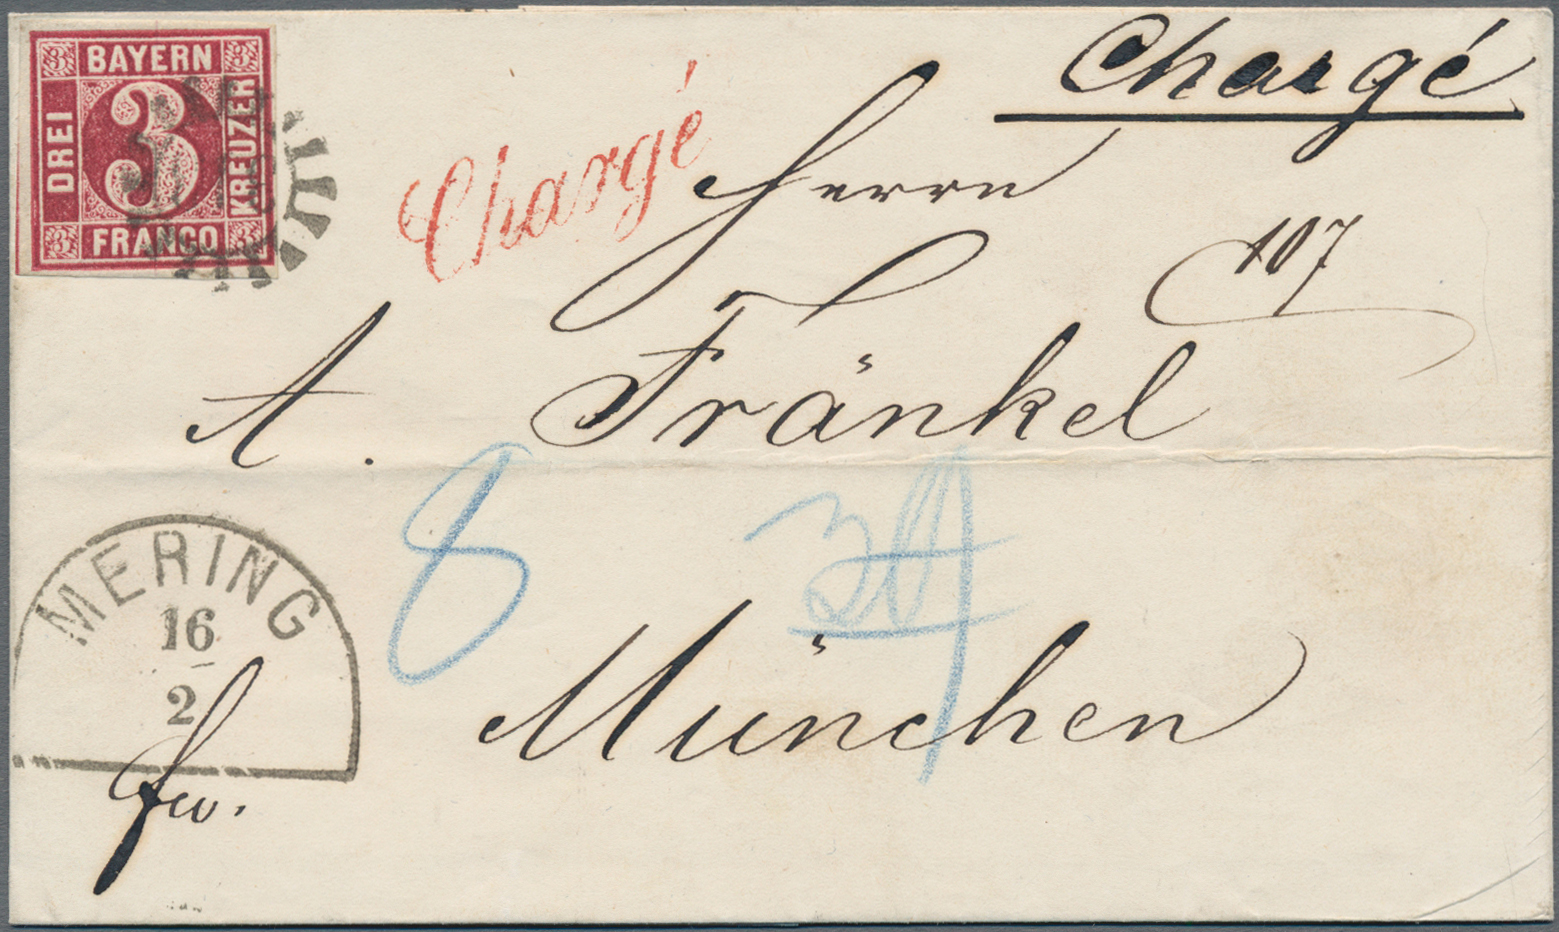 3 BAYERN 3
DREI 3 KREUZER
3 FRANCO 3
Chargé
Chargé
Herrn
107
A. Fränkel
8
MERING
16
2
München
fw.